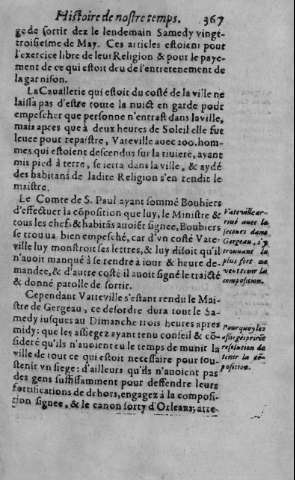 Histoire de nostre temps. 367
ge de sortir dez le lendemain Samedy vingt-
troisiesme de May. Ces articles estoient pour
l'exercice libre de leur Religion & pour le paye-
ment de ce qui estoit deu de l'entretenement de
la garnison.
La Cauallerie qui estoit du costé de la ville ne
laissa pas d'estre toute la nuict en garde pour
empescher que personne n'entrast dans la ville,
mais apres que à deux heures de Soleil elle fut
leuee pour repaistre, Vateville auec 200. hom-
mes qui estoient descendus sur la riuiere, ayant
mis pied à terre, se ietta dans la ville, & aydé
des habitans de ladite Religion s'en rendit le
maistre.
Le Comte de S. Paul ayant sommé Boubiers
d'effectuer la cõposition que luy, le Ministre &
tous les chefs & habitãs auoiẽt signee, Boubiers
se trouua bien empesché, car d'vn costé Vate-
ville luy monstroit ses lettres, & luy disoit qu'il
n'auoit manqué à se rendre à iour & heure de-
mandee, & d'autre costé il auoit signé le traicté
& donné parolle de sortir.
Vateville ar-
riué auec la
jacques dans
Gergeau, s'y
trouuant le
plus fort ne
veut tenir la
composition.
Cependant Vatteville s'estant rendu le Mai-
stre de Gergeau, ce desordre dura tout le Sa-
medy iusques au Dimanche trois heures apres
midy: que les assiegez ayant tenu conseil & cõ-
sideré qu'ils n'auoient eu le temps de munir la
ville de tout ce qui estoit necessaire pour sou-
stenir vn siege: d'ailleurs qu'ils n'auoient pas
des gens suffisamment pour deffendre leurs
fortifications de dehors, engagez à la composi-
tion signee, & le canon sorty d'Orleans, arre-
Pourquoy les
assiegez
resolution de
tenir la cõ-
position.